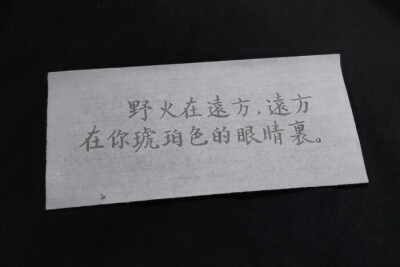 野火在遠方，遠方
在你琥珀色的眼睛裏。